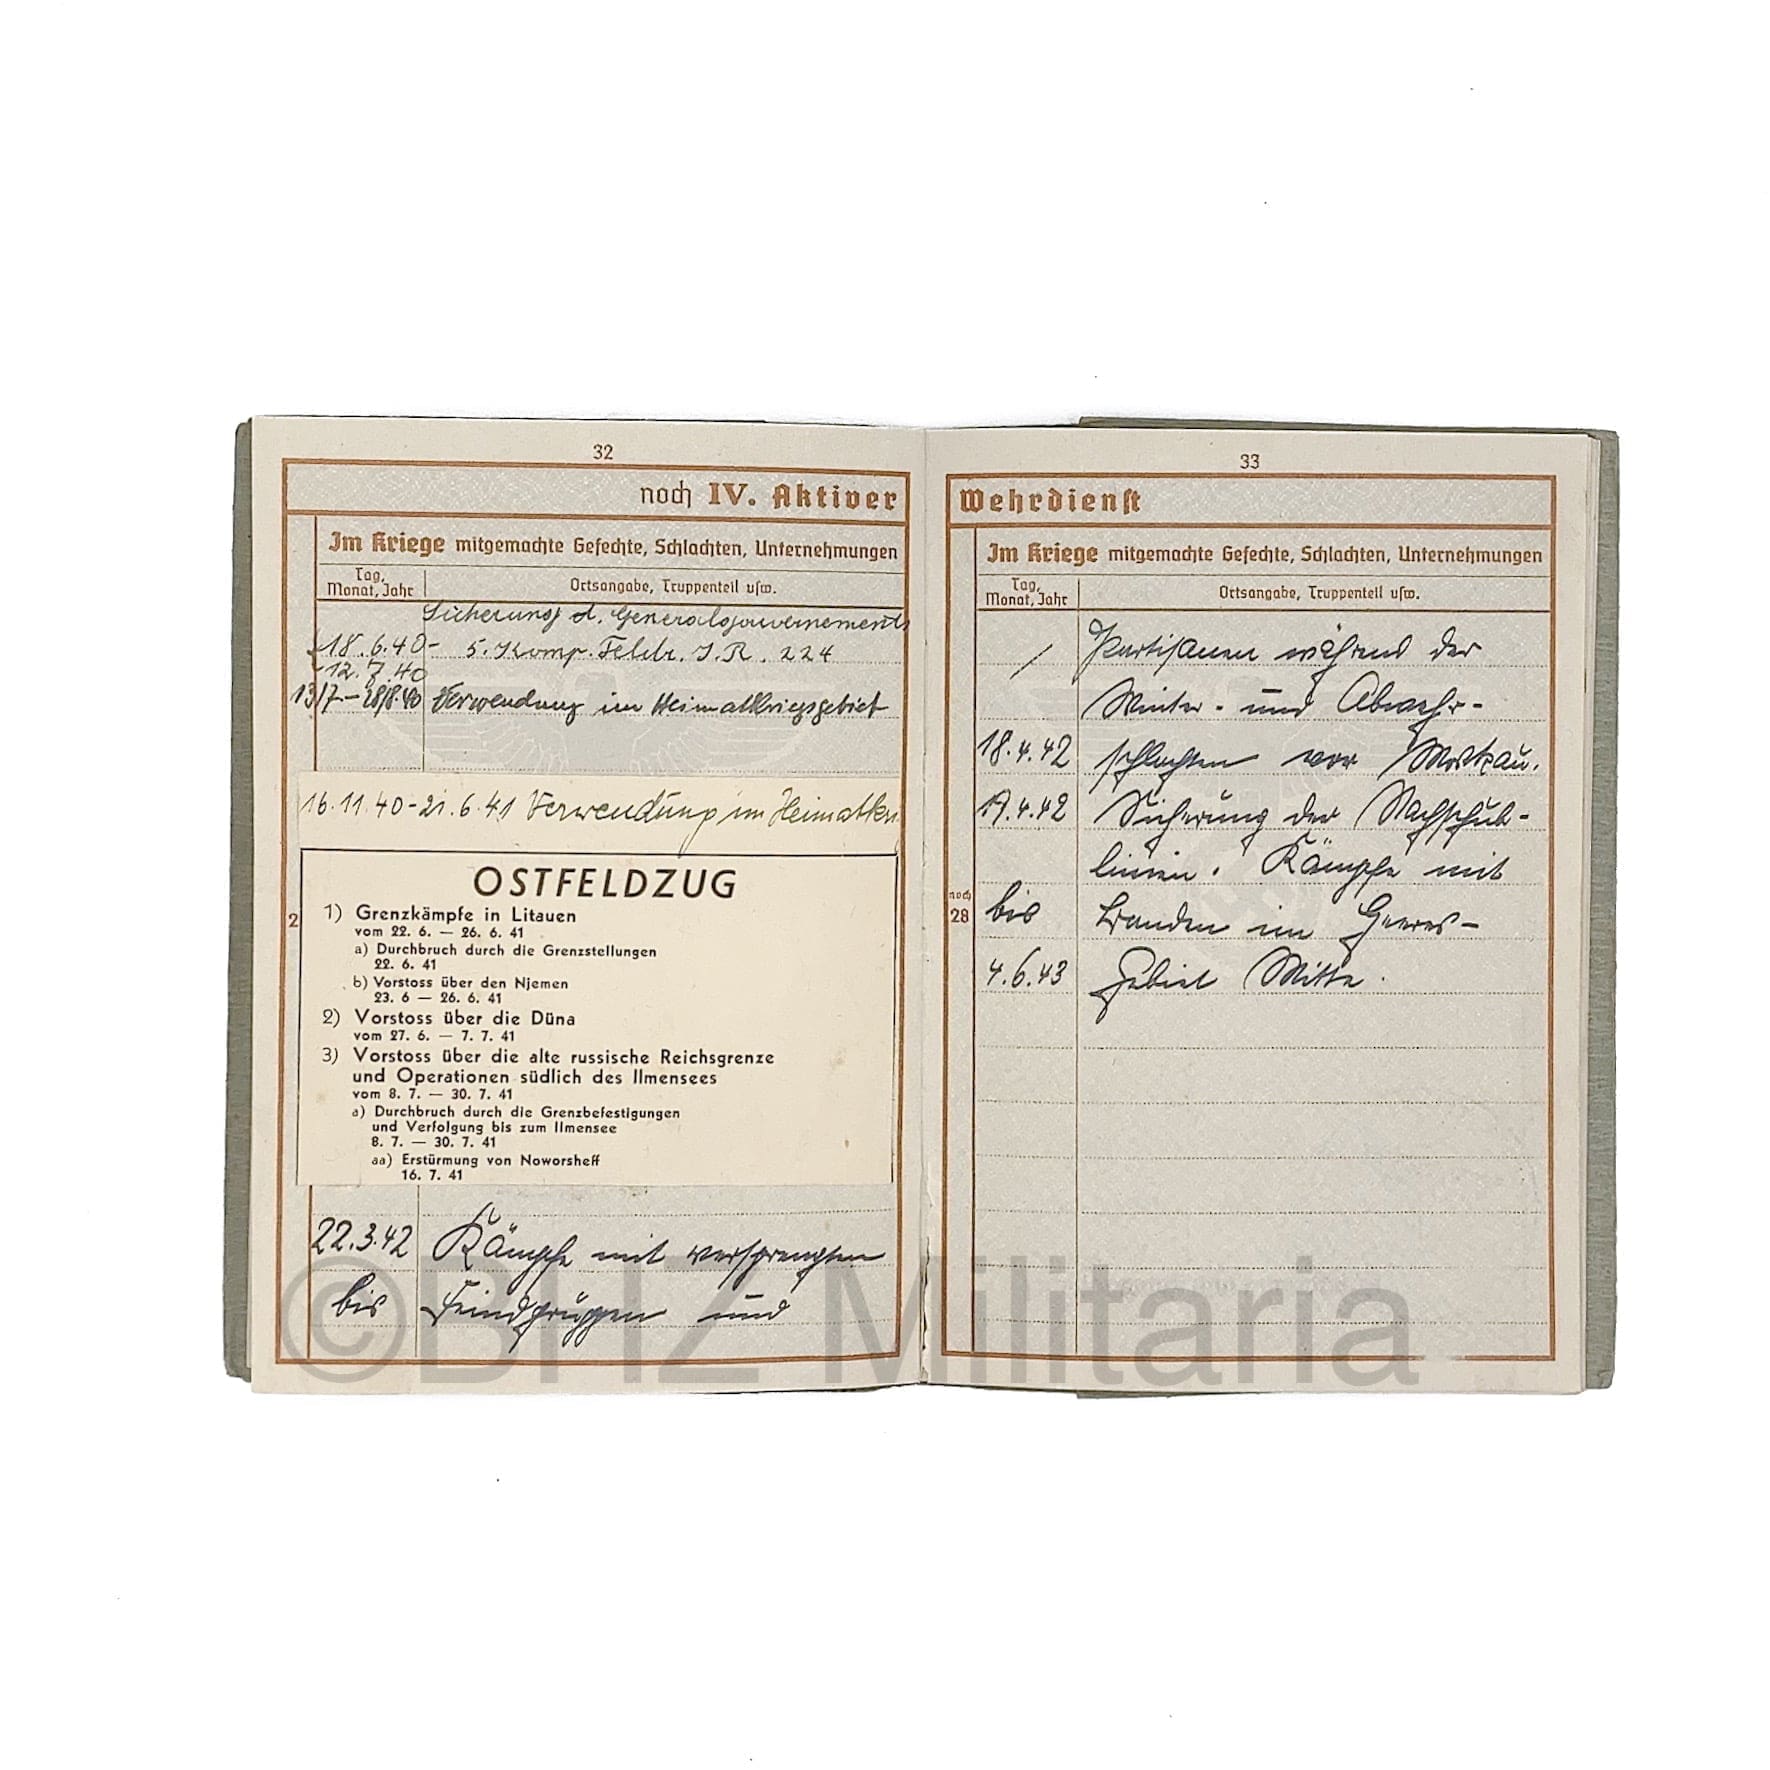 32
noch IV. Aktiver
Im Kriege mitgemachte Gefechte, Schlachten, Unternehmungen
Tag, Monat, Jahr
Ortsangabe, Truppenteil usw.
Sicherung d. Generalgouvernements
18.6.40- 5. Komp. Feldr. I.R. 224
12.7.40
13/7-28/8.40 Verwendung im Heimatkriegsgebiet
16.11.40-21.6.41 Verwendung im Heimatkri
OSTFELDZUG
1) Grenzkämpfe in Litauen
vom 22. 6. — 26. 6. 41
a) Durchbruch durch die Grenzstellungen
22. 6. 41
b) Vorstoss über den Njemen
23. 6 — 26. 6. 41
2) Vorstoss über die Düna
vom 27. 6. — 7. 7. 41
3) Vorstoss über die alte russische Reichsgrenze
und Operationen südlich des Ilmensees
vom 8. 7. — 30. 7. 41
a) Durchbruch durch die Grenzbefestigungen
und Verfolgung bis zum Ilmensee
8. 7. — 30. 7. 41
aa) Erstürmung von Noworsheff
16. 7. 41
2
22.3.42 Kämpfe mit versprengten
bis Feindgruppen und
33
Wehrdienst
Im Kriege mitgemachte Gefechte, Schlachten, Unternehmungen
Tag, Monat, Jahr
Ortsangabe, Truppenteil usw.
Partisanen während der
Winter- und Abwehr-
18.4.42 schlachten vor Moskau.
19.4.42 Sicherung der Nachschub-
linien. Kämpfe mit
noch 28
bis Banden im Heeres-
4.6.43 Gebiet Mitte.
©BHZ Militaria